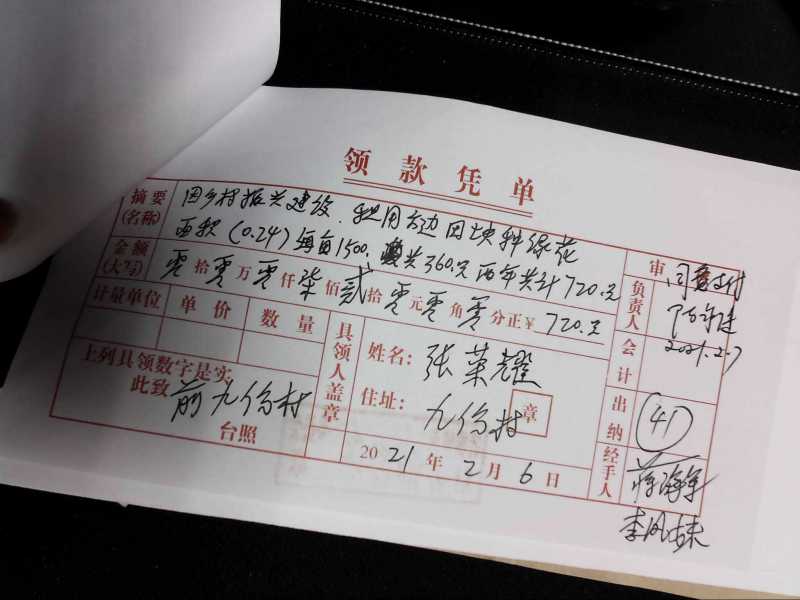 领款凭单
摘要(名称) 因乡村振兴建设,租用方边田块种绿花
面积(0.24)每亩1500, 共360.元 两年共计720.元
金额(大写) 零拾零万零仟柒佰贰拾零元零角零分正¥ 720.元
计量单位 单价 数量
上列具领数字是实
此致 前九份村
台照
具领人盖章
姓名: 张荣耀
住址: 九份村 章
2021年2月6日
审 同意支付
负责人
2021.2.7
会计
出纳 (41)
经手人 蒋海军
李凤妹